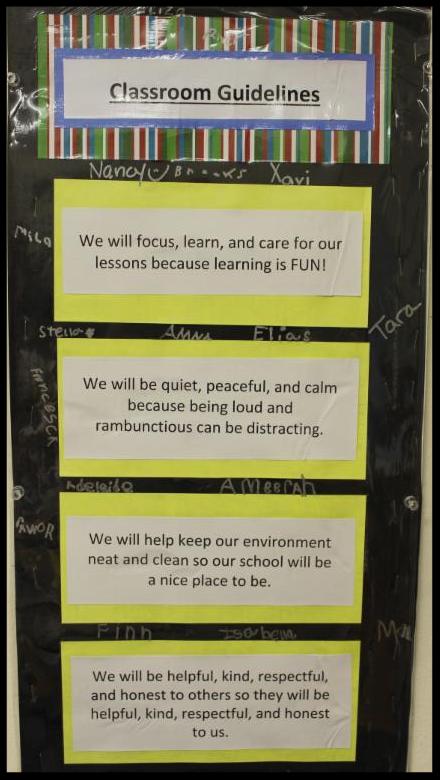 Classroom Guidelines
Nancy Brooks Xavi
We will focus, learn, and care for our
lessons because learning is FUN!
Mila
Tara
Stella Anna Elias
We will be quiet, peaceful, and calm
because being loud and
rambunctious can be distracting.
Francesca
Adelaide AMeerah
We will help keep our environment
neat and clean so our school will be
a nice place to be.
Finn Isabella
We will be helpful, kind, respectful,
and honest to others so they will be
helpful, kind, respectful, and honest
to us.